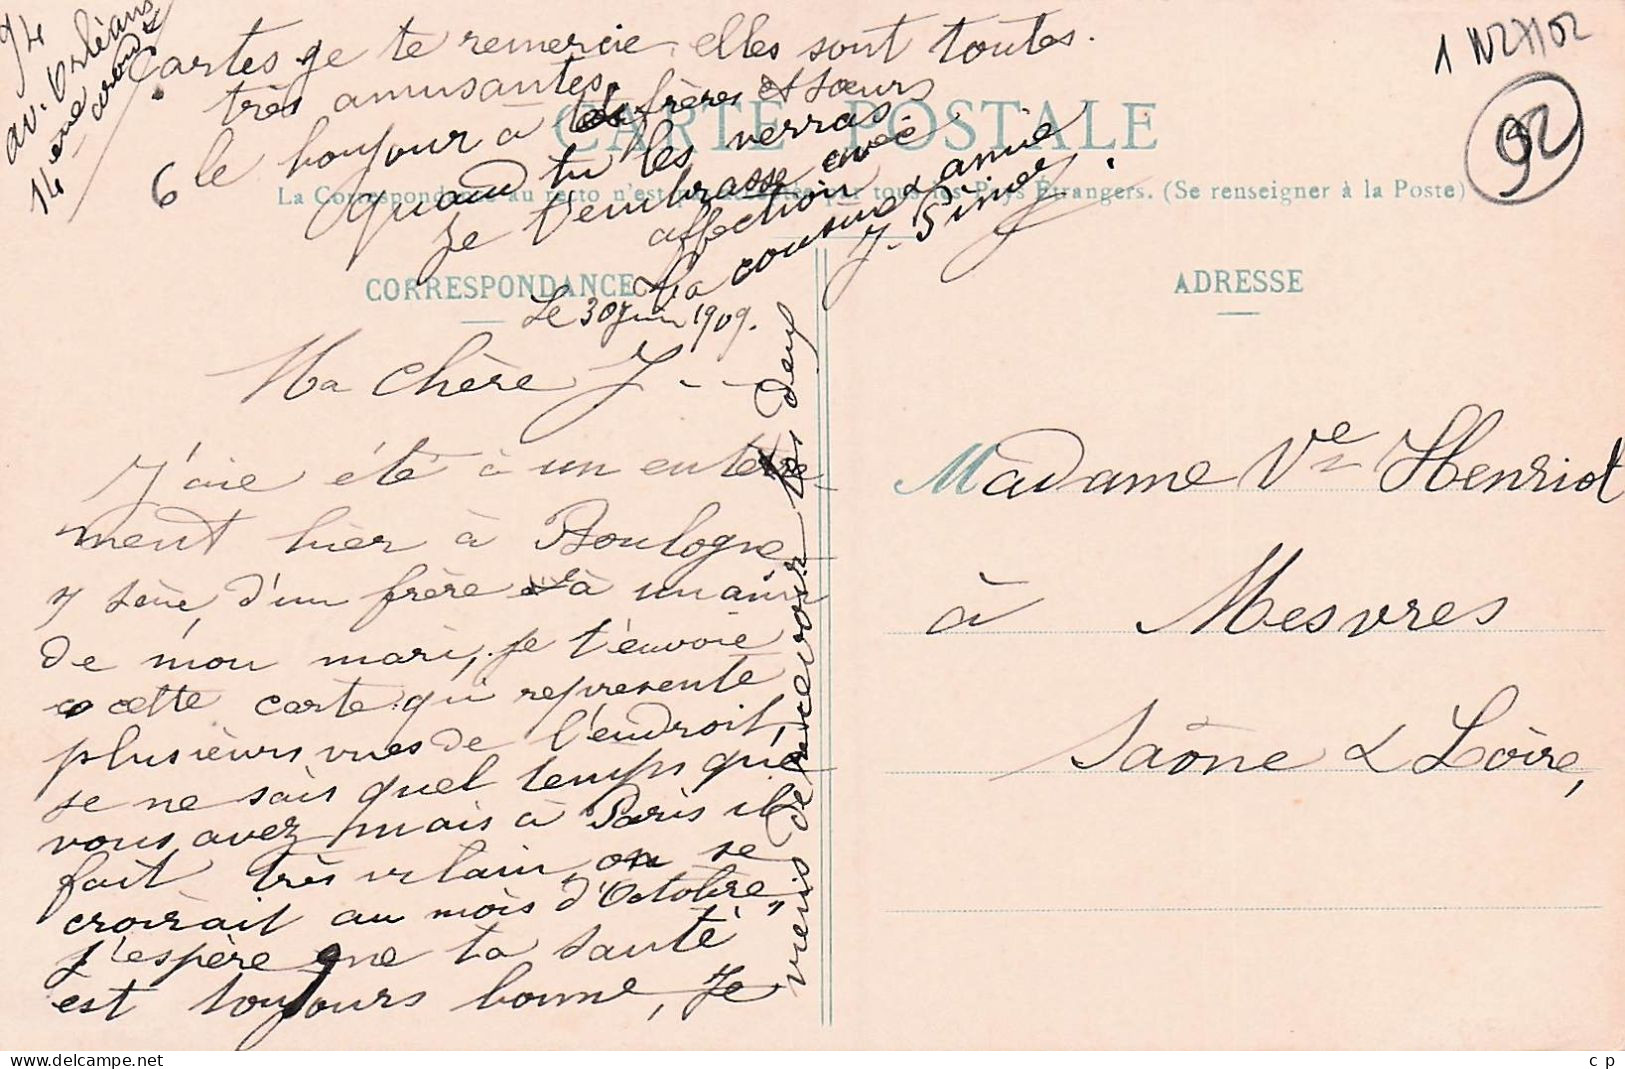 94
av. Orléans
14 eme arond
cartes je te remercie, elles sont toutes
très amusantes.
le bonjour à tes frères et sœurs
quand tu les verras
je t'embrasse avec
affection
ta cousine & amie
J. Pinet
6
1 N27/102
92
CARTE POSTALE
La Correspondance au recto n'est pas acceptée par tous les Pays Étrangers. (Se renseigner à la Poste)
CORRESPONDANCE
ADRESSE
Le 30 Juin 1909.
Ma chère J - -
J'aie été à un enterre-
ment hier à Boulogne
s seine, d'un frère à un ami
de mon mari, je t'envoie
cette carte qui represente
plusieurs vues de l'endroit,
je ne sais quel temps que
vous avez mais à Paris il
fait très vilain, on se
croirait au mois d'Octobre,
j'espère que ta santé
est toujours bonne, Je
viens de recevoir tes deux
Madame Ve Henriot
à Mesvres
Saône & Loire,
www.delcampe.net
c p